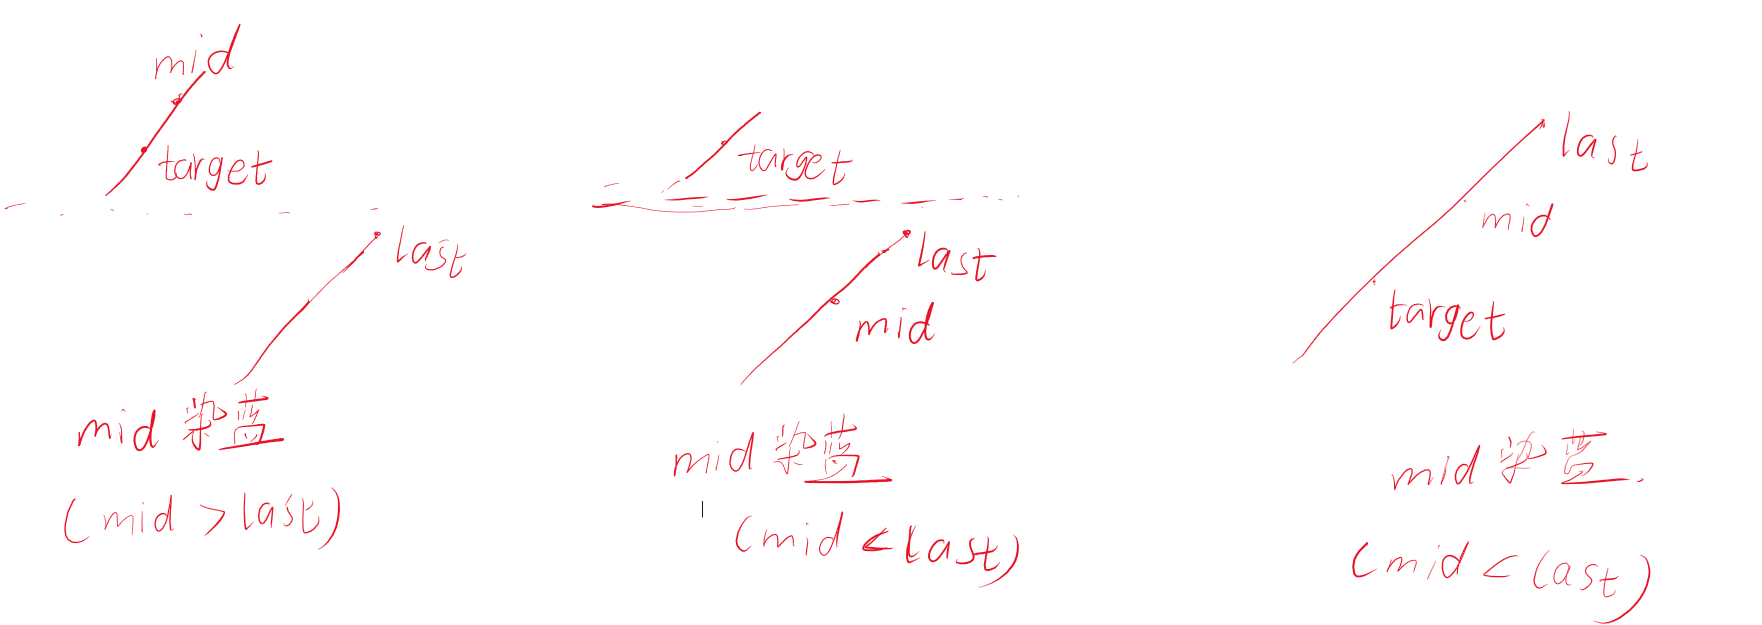 mid
target
last
mid 染蓝
(mid > last)
target
last
mid
mid 染蓝
(mid < last)
last
mid
target
mid 染蓝.
(mid < last)